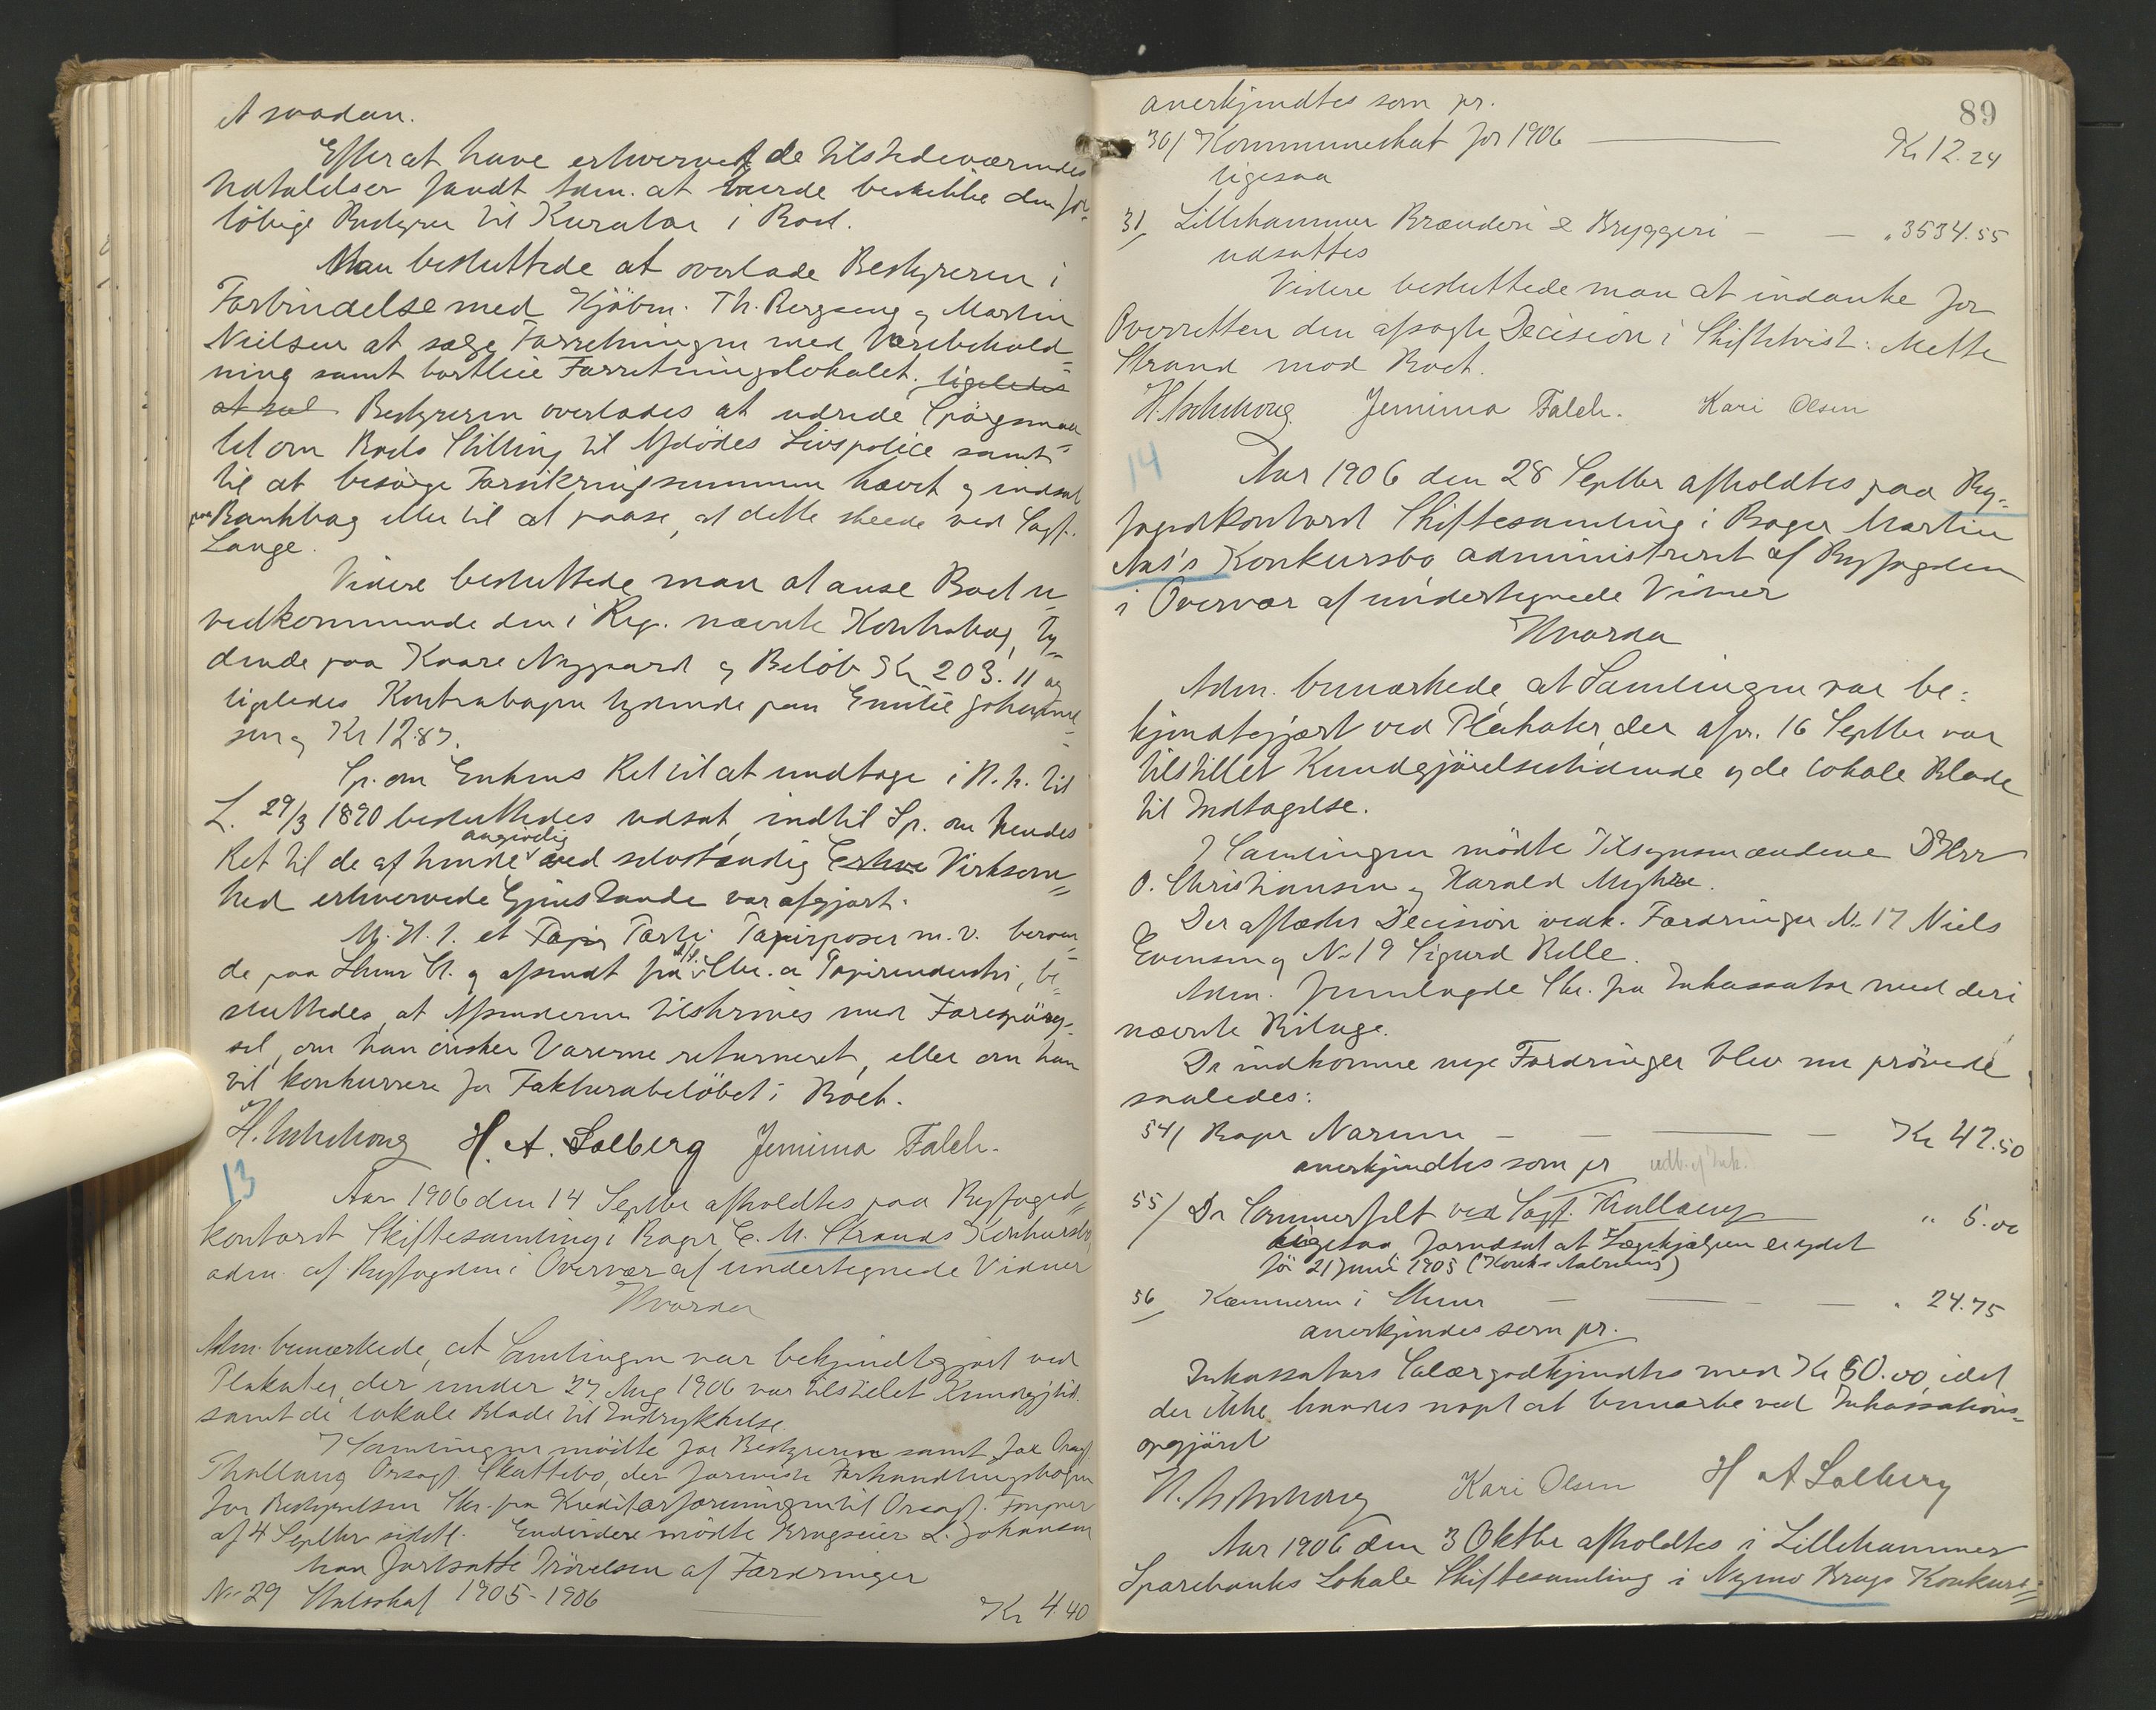 saadan.
Efterat have erhvervet de tilstedeværendes
Udtalelser fandt Adm. at burde beskikke den fore-
løbige Bestyrer til Kurator i Boet.
Man besluttede at overlade Bestyreren i
Forbindelse med Kjøbm. Th. Bergseng og Martin
Nielsen at sælge Forretningen med Varebehold=
ning samt bortleie Forretningslokalet. ligeledes
at Bestyreren overlades at udrede Spørgsmaa=
let om Boets Stilling til Afdødes Livspolice samt
til at besørge Forsikringssummen hævet og indsat
paa Bankbog eller til at paase, at dette skeede ved Sagf.
Lange.
Videre besluttede man at anse Boet u=
vedkommende den i Reg. nævnte Kontrabog, ly=
dende paa Kaare Nygaard og Beløb Kr 203.11 og
ligeledes Kontrabogen lydende paa Emilie Johanne=
sen og Kr 12.87.
Sp. om Enkens Ret til at undtage i H. h. til
L. 29/3 1890 besluttedes udsat, indtil Sp. om hendes
angivelig
Ret til de af hende ved selvstændig Erhve Virksom=
hed erhvervede Gjenstande var afgjort.
M. H. t. et Papir Parti Papirposer m.v. beroen=
de paa Hmr St. og afsendt fra Chr.a Papirindustri, be=
sluttedes, at Afsenderen tilskrives med Forespørg-
sel, om han ønsker Varerne returneret, eller om han
vil konkurrere for Fakturabeløbet i Boet.
H. A. Solberg Jemima Falch.
13
Aar 1906 den 14 Septbr afholdtes paa Byfoged=
kontoret Skiftesamling i Bager C. M. Strands Konkursbo,
adm. af Byfogden i Overvær af undertegnede Vidner
Hvorda
Adm. bemærkede, at Samlingen var bekjendtgjort ved
Plakater, der under 27 Aug 1906 var tilstillet Kundgj.tid.
samt de lokale Blade til Indrykkelse.
I Samlingen mødte for Bestyreren samt for Orsagf.
Thallaug Orsagf. Skattebo, der foreviste Forhandlingsbogen
for Bestyrelsen Skr. fra Kreditorforeningen til Orsagf.
af 4 Septbr sidstl. Endvidere mødte Brugseier L. Johansen
Man fortsatte Prøvelsen af Fordringer
No 29 Statsskat 1905-1906 Kr 4.40
89
anerkjendtes som pr.
30/ Kommuneskat for 1906 Kr 12.24
ligesaa
31/ Lillehammer Brænderi & Bryggeri - - " 3534.55
udsattes
Videre besluttede man at indanke for
Overretten den afsagte Decision i Skiftetvist: Mette
Strand mod Boet.
Jemima Falch. Kari Olsen
14
Aar 1906 den 28 Septbr afholdtes paa By=
fogedkontoret Skiftesamling i Bager Martin
Aas's Konkursbo administreret af Byfogden
i Overvær af undertegnede Vidner
Hvorda
Adm. bemærkede at Samlingen var be=
kjendtgjort ved Plakater, der afvr. 16 Septbr var
tilstillet Kundgjørelsestidende og de lokale Blade
til Indtagelse.
I Samlingen mødte Tilsynsmændene DHrr
O. Christiansen og Harald Myhre.
Der afsagdes Decision vedk. Fordringer No 17 Niels
Evensen og No 19 Sigurd Kelle.
Adm. fremlagde Skr. fra Inkassator med deri
nævnte Bilage.
De indkomne nye Fordringer blev nu prøvede
saaledes:
54/ Bager Narum - - - Kr 42.50
anerkjendtes som pr
55/ Dr Sommerfelt ved Sagf. Thallaug " 5.00
ligesaa forudsat at Lægehjælpen er ydet
før 21 Juni 1905
56/ Kæmneren i Hmr - - - " 24.75
anerkjendes som pr.
Inkassators Salær godkjendtes med Kr 50.00, idet
der ikke fandtes noget at bemærke ved Inkassations=
opgjøret
Kari Olsen H A Solberg
Aar 1906 den 3 Oktbr afholdtes i Lillehammer
Sparebanks Lokale Skiftesamling i Nymo Brugs Konkurs=